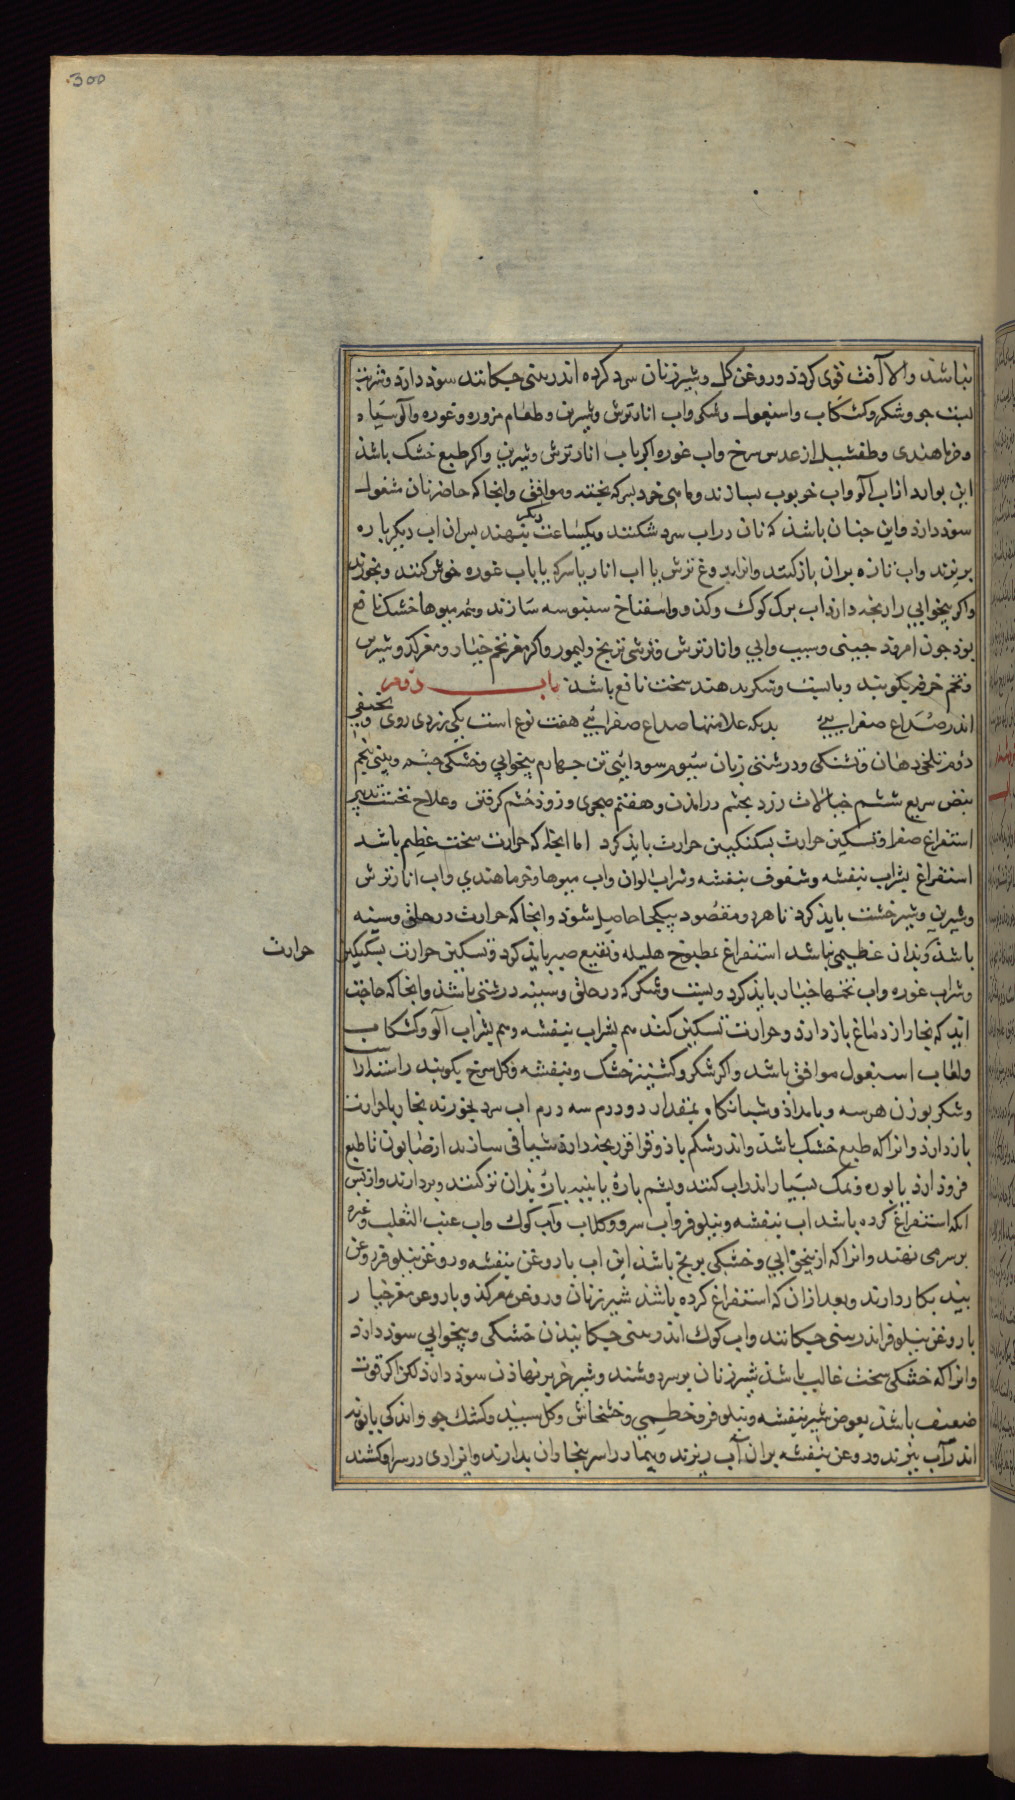 300
نباشد والا آفت قوی کردد و روغن کل و شیر زنان سرد کرده اندر بینی چکانند سود دارد و شربت
بست جو و شکر و کشکاب و اسبغول و شکر و اب انار ترش و شیرین و طعام مزوره و غوره و آلو سیاه
و خرما هندی و طفشیل از عدس سرخ و اب غوره اکر با اب انار ترش و شیرین و اکر طبع خشک باشد
این بوارد از اب آلو و اب خربوب بسازند و ماهی خرد بسرکه پخته موافق و انجا که حاضر نان مشغول
سود دارد و این چنان باشد که نان در اب سرد شکنند و یکساعت بنهند بس ان اب دیکر باره
دیکر
بریزند و اب تازه بران بازکنند و انرا بدوغ ترش یا اب انار یا سرکه یا باب غوره خوش کنند و بخورند
و اکر بیخوابی رنجه دارد اب برک کوک و کدو و اسفناخ سنبوسه سازند و همه میوها خشک نافع
بود چون امرود چینی و سیب و ابی و انار ترش و ترشی ترنج و لیمو و اکر مغز تخم خیار و مغز کدو شیرین
و تخم خرفه بکوبند و با بست و شکر بدهند سخت نافع باشد باب دوم
اندر صداع صفرایی بدانکه علامتها صداع صفرایی هفت نوع است یکی زردی روی و بینی
دوم تلخی دهان و تشنکی و درشتی زبان سیوم سودایی تن چهارم بیخوابی و خشکی چشم و بینی پنجم
نبض سریع ششم خیالات زرد بچشم درامدن و هفتم و زود خشم کرفتن و علاج نخست تدبیر
استفراغ صفرا و تسکین حرارت بسکنکبین حرارت باید کرد اما انجا که حرارت سخت عظیم باشد
استفراغ بشراب بنفشه و سفوف بنفشه و شراب الوان و اب میوها و خرما هندی و اب انار ترش
و شیرین و شیر خشت باید کرد تا هر دو مقصود بیکجا حاصل شود و انجا که حرارت در حلق و سینه
باشد و بدان عظیمی نباشد استفراغ بمطبوخ هلیله و نقیع صبر باید کرد و تسکین حرارت بسکنکبین
حرارت
و شراب غوره و اب تخمها خیار باید کرد و بست و شکر که در حلق و سینه درشتی باشد و انجا که حاجت
اید که بخار از دماغ باز دارد و حرارت تسکین کنند هم بشراب بنفشه و هم بشراب آلو و کشکاب
و لعاب اسبغول موافق باشد و اکر شکر و کشنیز خشک و بنفشه و کل سرخ بکوبند راستاراست
و شکر بوزن هرسه و بامداد و شبانکاه بمقدار دو درم سه درم اب سرد بخورند بخار با حرارت
باز دارد و انرا که طبع خشک باشد و اندر شکم باد و قراقر رنجه دارد شیافی سازند از صابون تا طبع
فرود ارد یا بوره و نمک بسیار اندر اب کنند و پشم پارۀ یا پنبه پارۀ بدان تر کنند و بردارند و از پس
انکه استفراغ کرده باشد اب بنفشه و نیلوفر و اب سرو و کلاب و آب کوک و اب عنب الثعلب و غیره
بر سر می نهند و انرا که از بیخوابی و خشکی برنج باشد این اب با روغن بنفشه و روغن نیلوفر و روغن
بید بکار دارند و بعد از ان که استفراغ کرده باشد شیر زنان و روغن مغز کدو و با روغن مغز خیار
با روغن نیلوفر اندر بینی چکانند و اب کوک اندر بینی چکانیدن خشکی و بیخوابی سود دارد
و انرا که خشکی سخت غالب باشد شیر زنان بر سر دوشند و شیر خر بر نهادن سود دارد لکن اکر قوت
ضعیف باشد بعوض شیر بنفشه و نیلوفر و خطمی و خشخاش و کل سپید و کشک جو و اندکی بابونه
اندر آب بپزند و روغن بنفشه بران آب ریزند و بیمار را سر ببخار ان بدارند و ازاری در سر او کشند